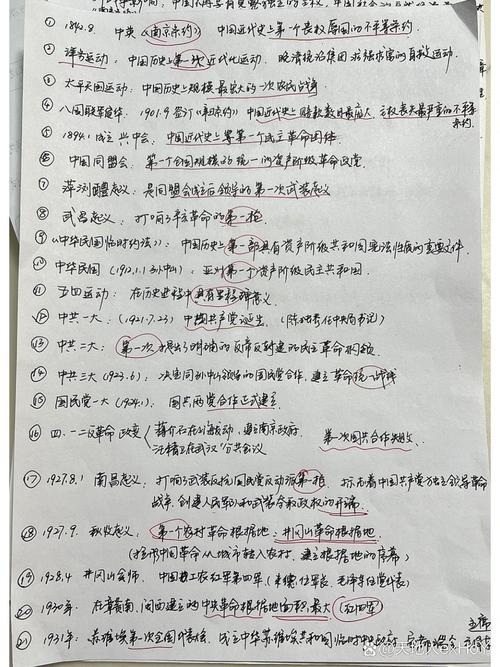 ① 1842.8. 中英《南京条约》 中国近代史上第一个丧权辱国的不平等条约
② 洋务运动:中国历史上第一次近代化运动. 晚清统治集团求强求富的自救运动.
③ 太平天国运动:中国历史上规模最宏大的一次农民战争
④ 八国联军侵华. 1901.9 签订《辛丑条约》中国近代史上赔款数目最庞大、主权丧失最严重的不平等
条约.
⑤ 1894.1 成立兴中会. 中国近代史上第一个民主革命团体.
⑥ 中国同盟会. 第一个全国规模的统一的资产阶级革命政党
⑦ 萍浏醴起义:是同盟会成立后领导的第一次武装起义
⑧ 武昌起义:打响了辛亥革命的第一枪
⑨ 《中华民国临时约法》:中国历史上第一部具有资产阶级共和国宪法性质的重要文件.
⑩ 中华民国(1912.1.1孙中山):亚洲第一个资产阶级民主共和国.
⑪ 五四运动:在历史进程中具有里程碑意义.
⑫ 中共一大:(1921.7.23) 中国共产党诞生. (陈独秀任中央局书记)
⑬ 中共二大:第一次提出了明确的反帝反封建的民主革命纲领
⑭ 中共三大(1923.6):决定同孙中山领导的国民党合作,建立革命统一战线
⑮ 国民党一大(1924.1):国共两党合作正式建立.
⑯ 四·一二反革命政变 蒋介石在上海发动,建立南京政府.
汪精卫在武汉"分共会议 第一次国共合作失败.
⑰ 1927.8.1 南昌起义. 打响了武装反抗国民党反动派第一枪. 标志着中国共产党独立领导革命
战争、创建人民军队和武装夺取政权的开端.
⑱ 1927.9. 秋收起义: 第一个农村革命根据地:井冈山革命根据地
(拉开中国革命从城市转入农村、建立根据地的序幕)
⑲ 1928.4 井冈山会师. 中国工农红军第四军(朱德任军长、毛泽东任党代表)
⑳ 1930年. 在章赣南、闽西建立的中央革命根据地面积最大
㉑ 1931年. 苏维埃第一次全国代表会. 成立中华苏维埃共和国临时中央政府.
主席